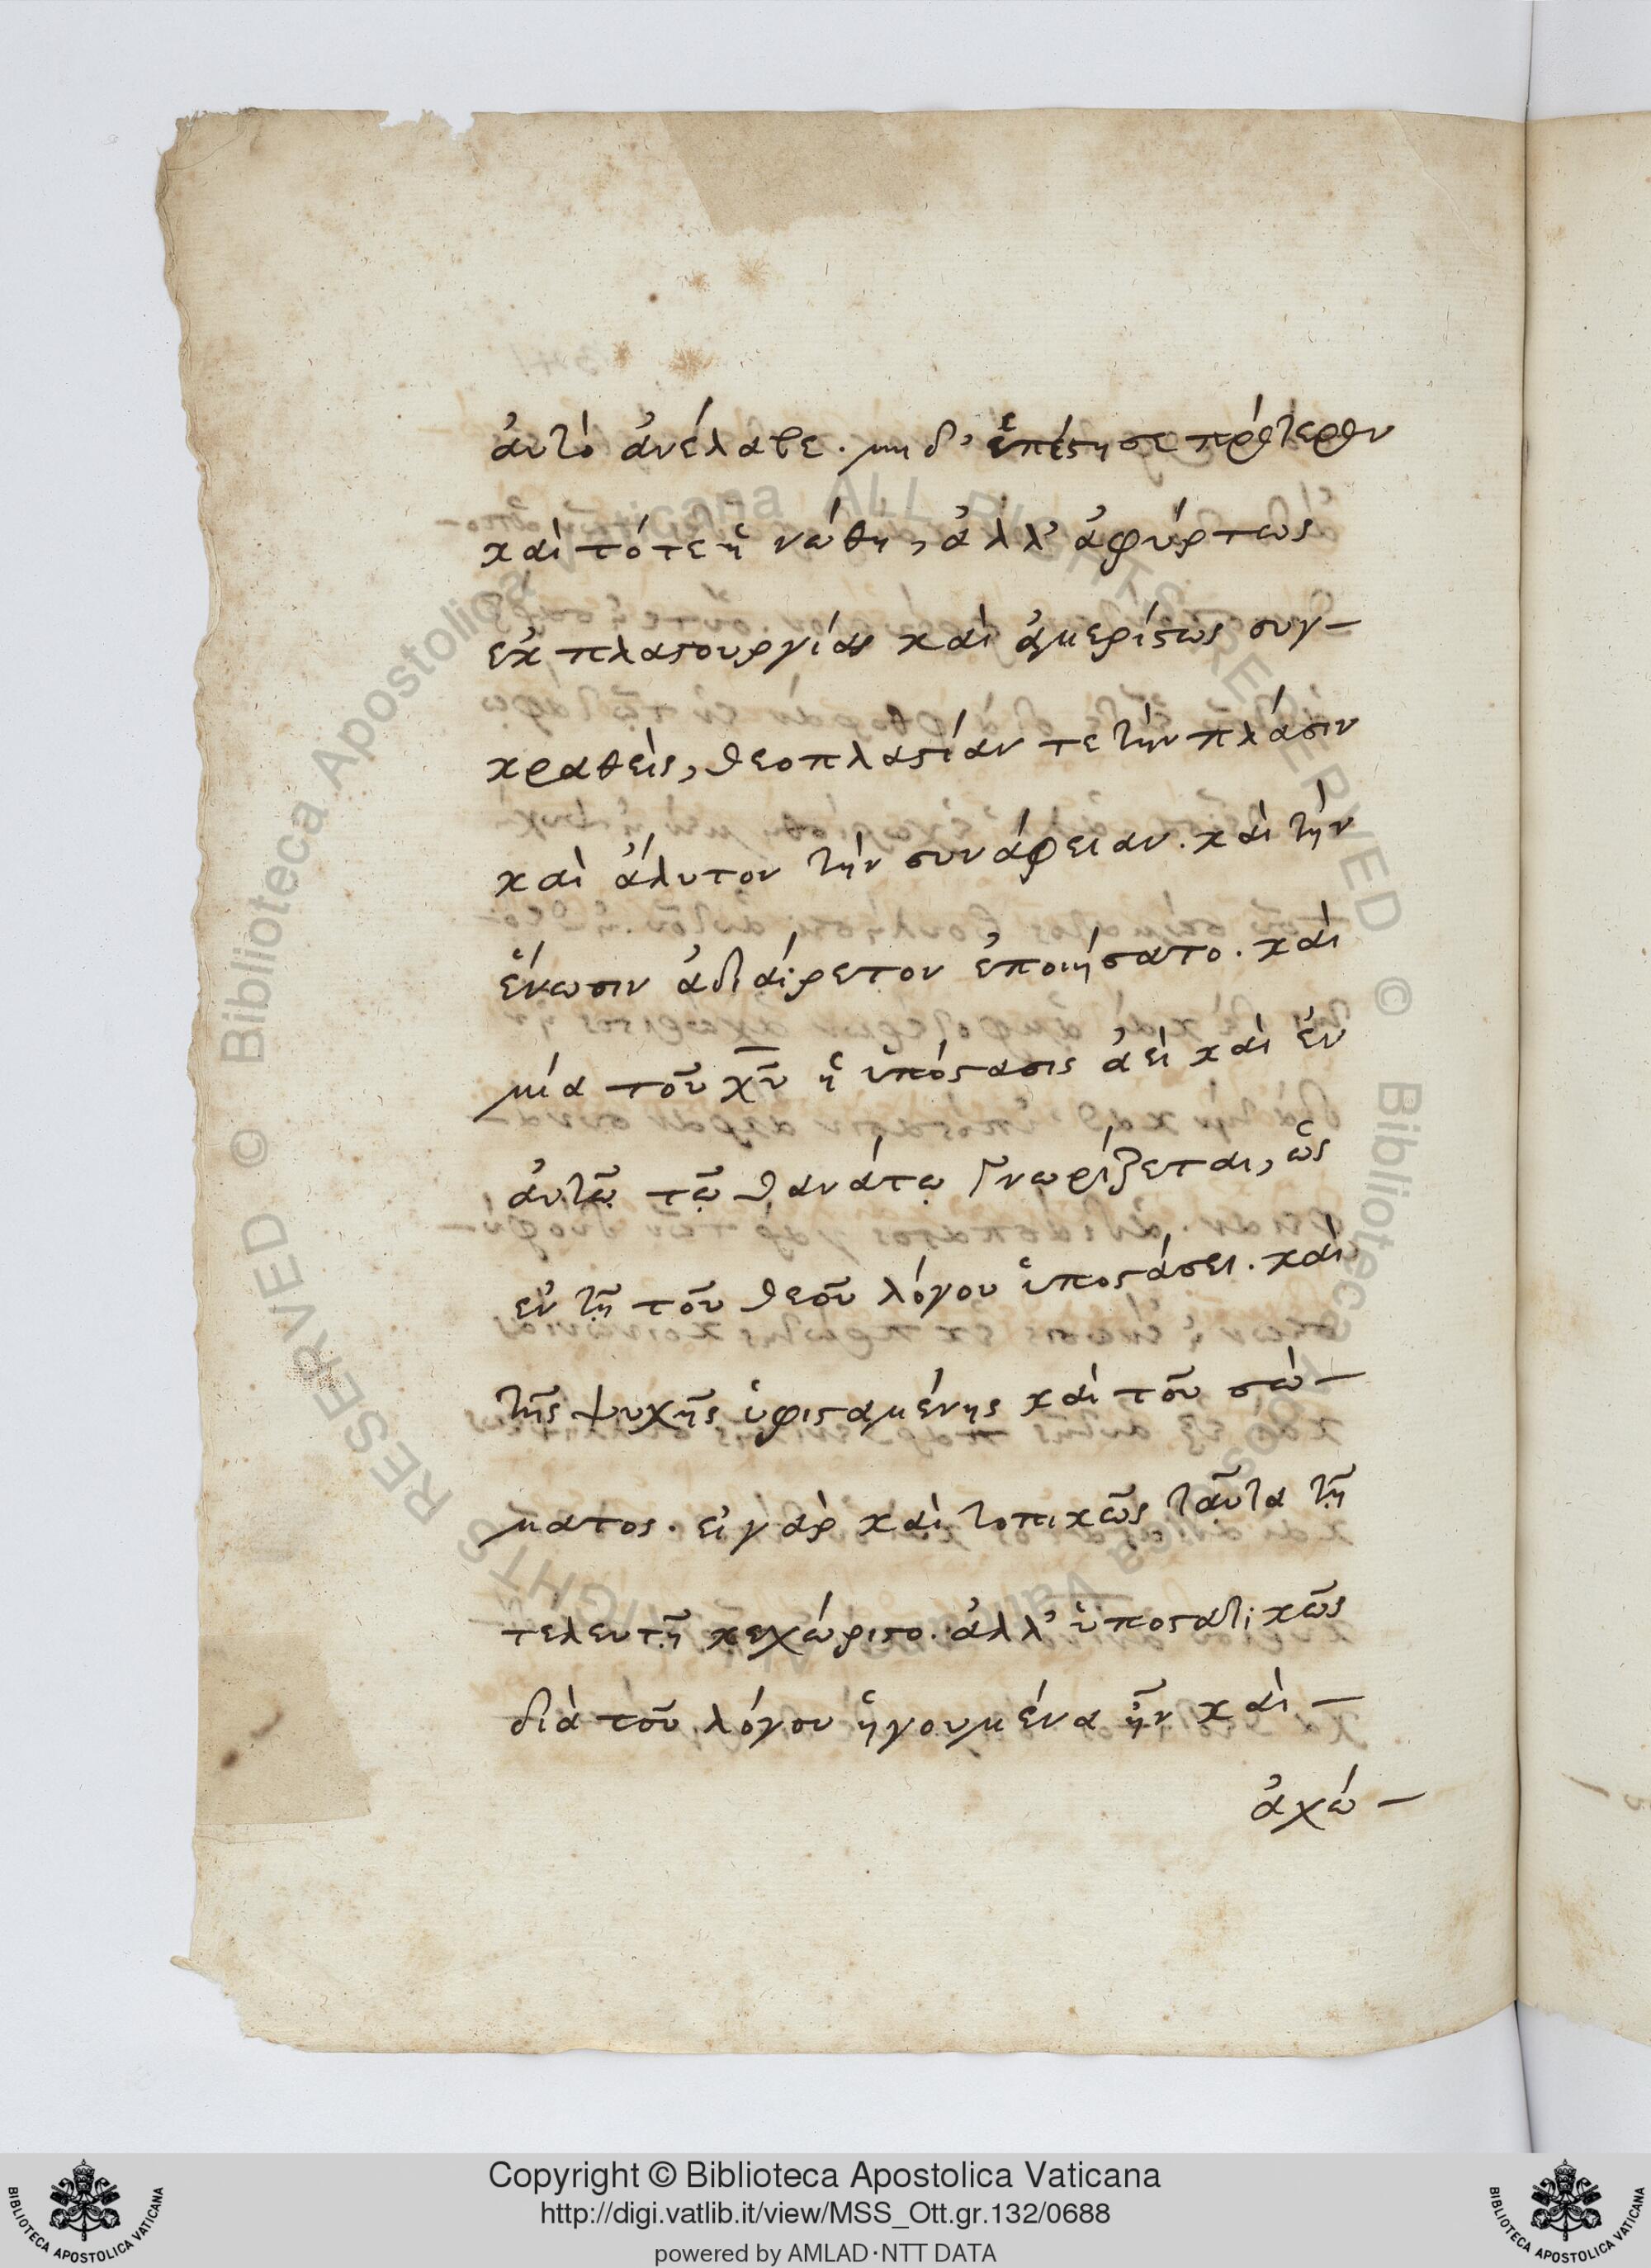 αὐτὸ ἀνέλαβε. μηδ' ἐπέστησε πρότερον
καὶ τότε ἡνώθη, ἀλλ' ἀφύρτως
ἐκ πλαστουργίας καὶ ἀμερίστως συγ-
κραθεὶς, θεοπλαστίαν τε τὴν πλάσιν
καὶ ἄλυτον τὴν συνάφειαν. καὶ τὴν
ἕνωσιν ἀδιαίρετον ἐποιήσατο. καὶ
μία τοῦ χ̅υ̅ ἡ ὑπόστασις ἀεὶ καὶ ἐν
αὐτῷ τῷ θανάτῳ γνωρίζεται, ὡς
ἐν τῇ τοῦ θεοῦ λόγου ὑποστάσει. καὶ
τῆς ψυχῆς ὑφισταμένης καὶ τοῦ σώ-
ματος. εἰ γὰρ καὶ τοπικῶς ταῦτα τῇ
τελευτῇ κεχώριστο. ἀλλ' ὑποστατικῶς
διὰ τοῦ λόγου ἡγουμένα ἦν καὶ -
ἀχώ-
Copyright © Biblioteca Apostolica Vaticana
http://digi.vatlib.it/view/MSS_Ott.gr.132/0688
powered by AMLAD·NTT DATA
BIBLIOTECA APOSTOLICA VATICANA
BIBLIOTECA APOSTOLICA VATICANA